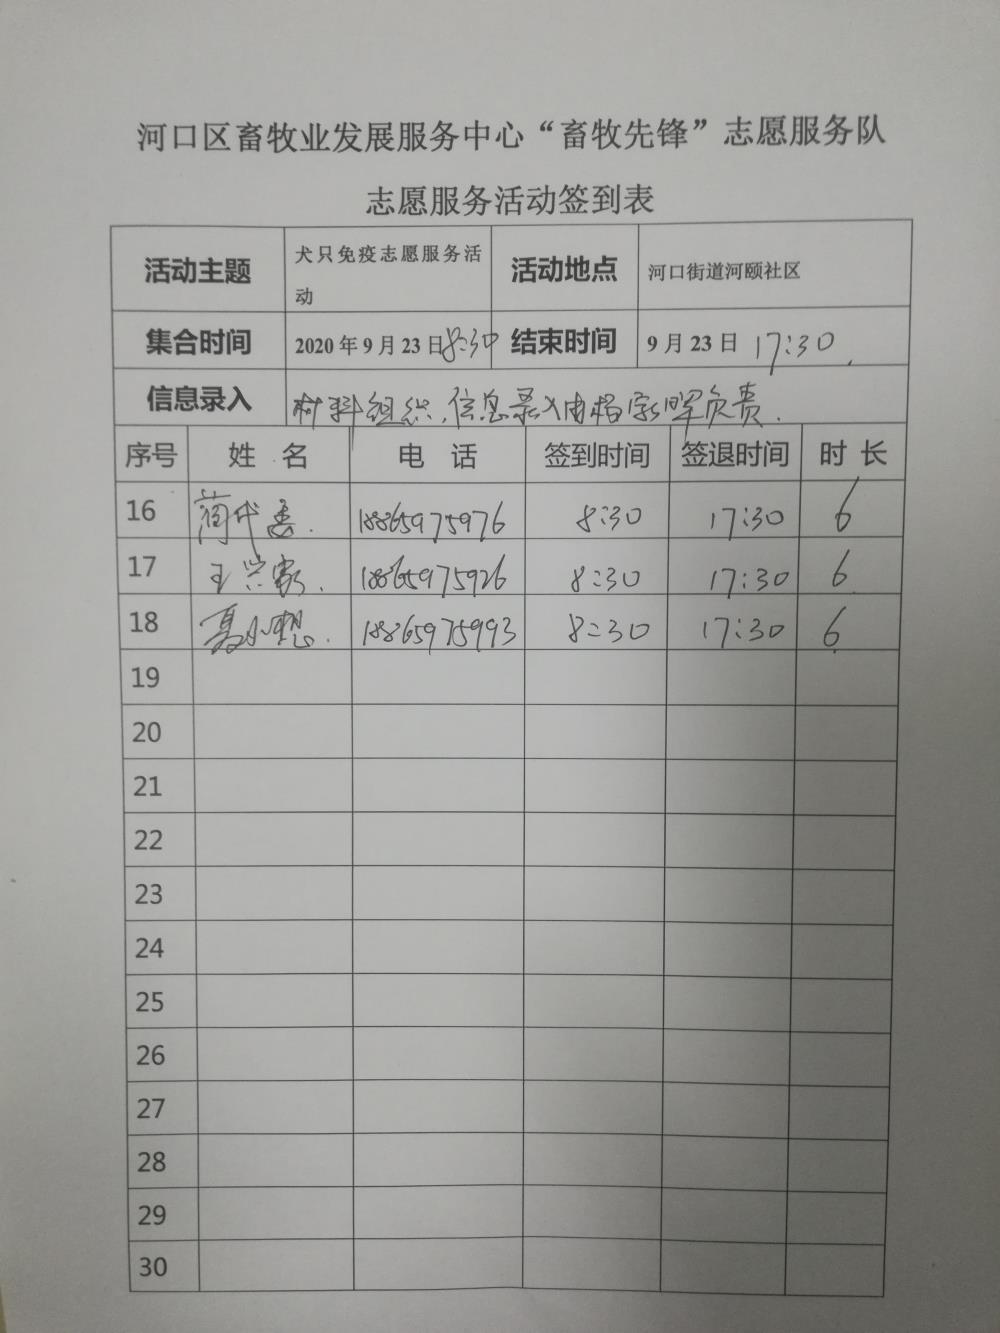 河口区畜牧业发展服务中心“畜牧先锋”志愿服务队
志愿服务活动签到表
活动主题 犬只免疫志愿服务活 活动地点 河口街道河颐社区
动
集合时间 2020年9月23日8:30 结束时间 9月23日 17:30.
信息录入 材料组织,信息录入由 负责.
序号 姓 名 电 话 签到时间 签退时间 时 长
16 18865975976 8:30 17:30 6
17 王 18865975926 8:30 17:30 6
18 聂小 18865975993 8:30 17:30 6
19
20
21
22
23
24
25
26
27
28
29
30